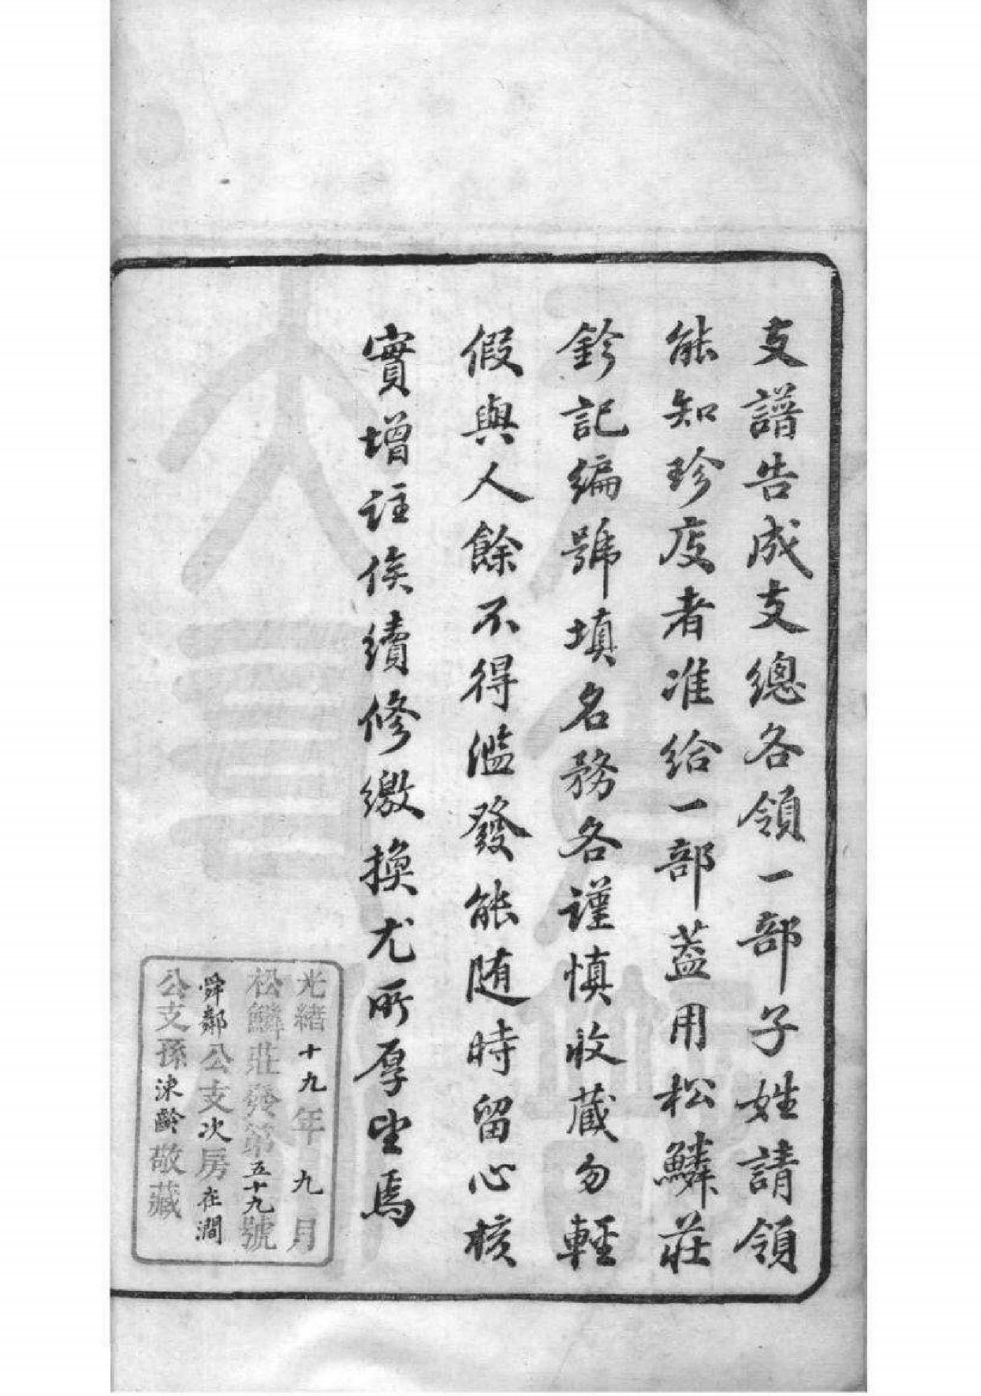 支譜告成支總各領一部子姓請領
能知珍庋者准給一部葢用松鱗莊
鈐記編號填名務各謹慎收藏勿輕
假與人餘不得濫發能随時留心核
實增註俟續修繳換尤所厚望焉
光緒十九年九月
松鱗莊發第五十九號
舜鄰公支次房在澗
公支孫涑齡敬藏